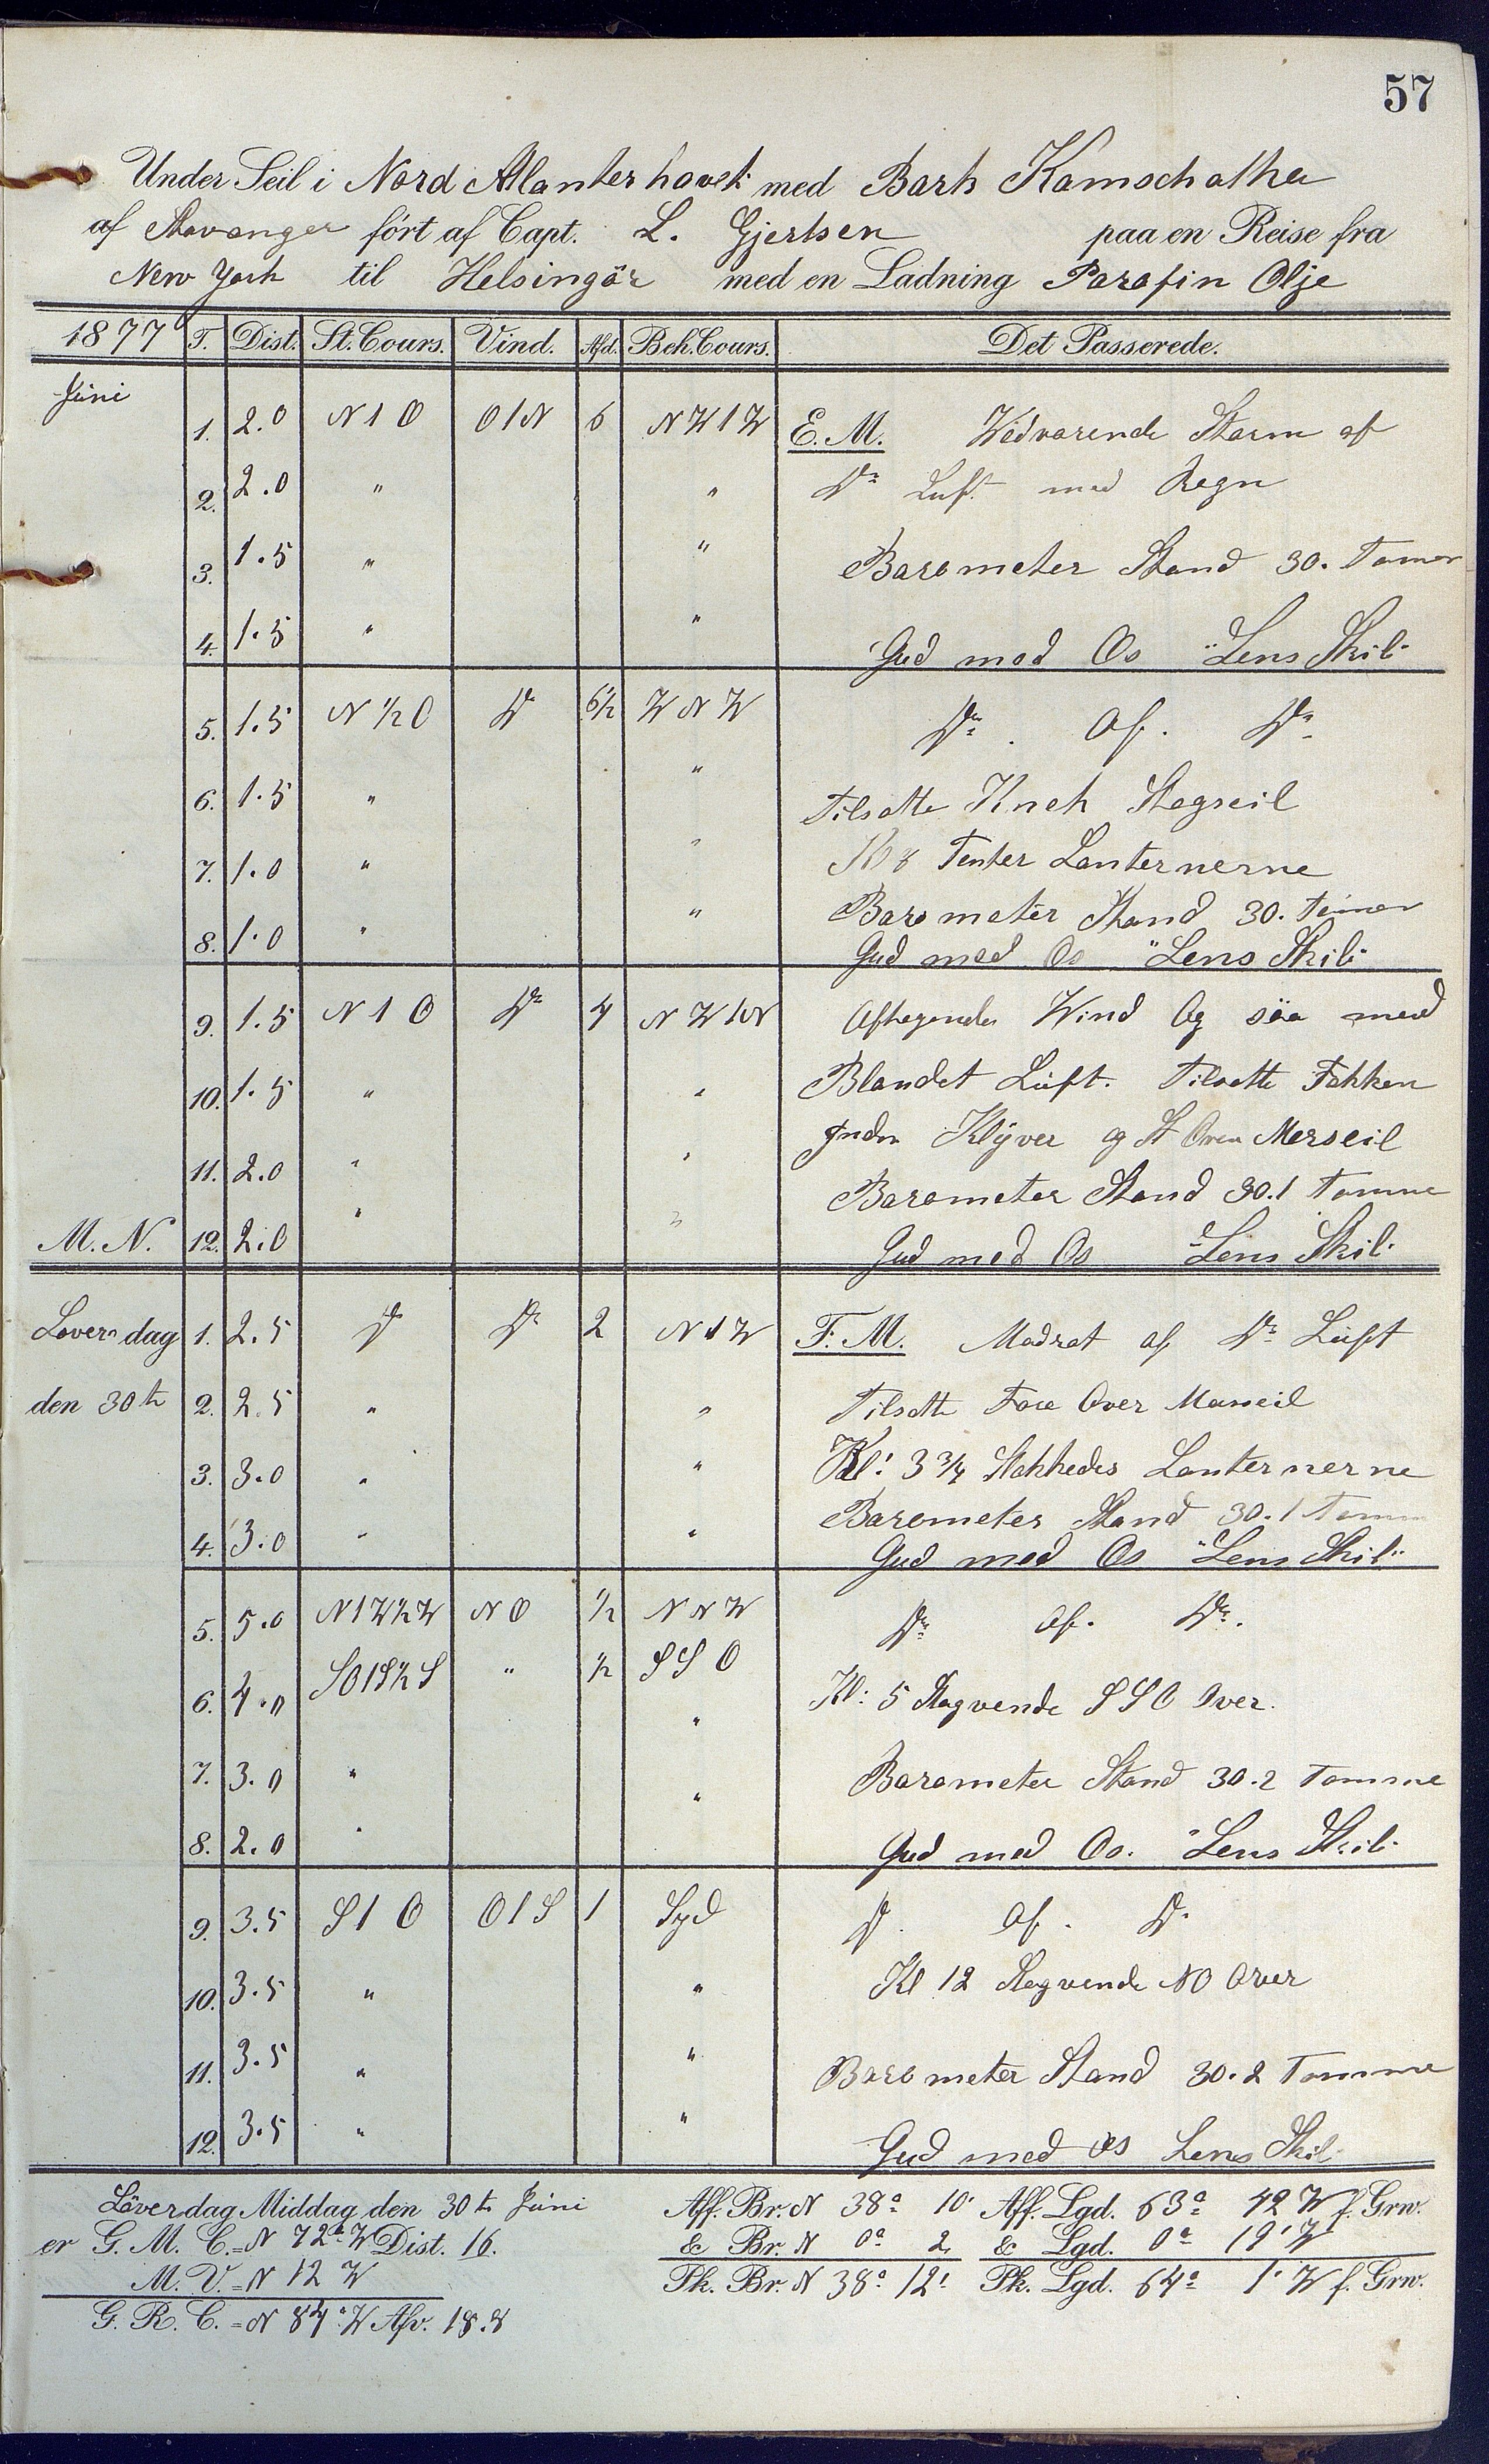 57
Under Seil i Nord Atlanterhavet med Bark Kamschatka
af Stavanger ført af Capt. L. Gjertsen paa en Reise fra
New York til Helsingör med en Ladning Parafin Olje
1877 T. Dist. St. Cours. Vind. Afd. Beh. Cours. Det Passerede.
Juni
1. 2.0 N 1 O O 1 N 6 N W 1 W E. M. Wedvarende Storm af
2. 2.0 " " Do Luft med Regn
3. 1.5 " " Barometer Stand 30. Tomer
4. 1.5 " " Gud med Os "Lens Skib"
5. 1.5 N ½ O Do 6½ W N W Do Af. Do
6. 1.5 " " Tilsatte Knek Stagseil
7. 1.0 " " Kl 8 Tenter Lanternerne
Barometer Stand 30. Tomer
8. 1.0 " " Gud med Os "Lens Skib"
9. 1.5 N 1 O Do 4 N W 1 N Aftagende Wind Og söe med
10. 1.5 " " Blandet Luft. Tilsatte Fokken
Inder Klyver og St Over Merseil
11. 2.0 " " Barometer Stand 30.1 Tomme
M. N. 12. 2.0 " " Gud med Os "Lens Skib"
Löverdag 1. 2.5 Do Do 2 N 1 W F. M. Modrat af Do Luft
den 30te 2. 2.5 " " Tilsatte Fore Over Merseil
3. 3.0 " " Kl: 3 ¾ Slokkedes Lanternerne
Barometer Stand 30.1 Tomm
4. 3.0 " " Gud med Os "Lens Skib"
5. 5.0 N 1 W ½ W N O ½ N N W Do Af. Do.
6. 4.0 SO 1 S ½ S " ½ S S O Kl: 5 Stagvende S S O Over.
7. 3.0 " " Barometer Stand 30.2 Tomme
8. 2.0 " " Gud med Os. "Lens Skib"
9. 3.5 S 1 O O 1 S 1 Syd Do. Af. Do.
10. 3.5 " " Kl 12 Stagvende NO Over
11. 3.5 " " Barometer Stand 30.2 Tomme
12. 3.5 " " Gud med os Lens Skib
Löverdag Middag den 30te Juni Aff. Br. N 38° 10' Aff. Lgd. 63° 42 W f. Grw.
er G. M. C. = N 72° W Dist. 16. & Br. N 0° 2 & Lgd. 0° 19' W
M. V. = N 12 W Pk. Br. N 38° 12' Pk. Lgd. 64° 1' W f. Grw.
G. R. C. = N 84° W Afv. 18.8